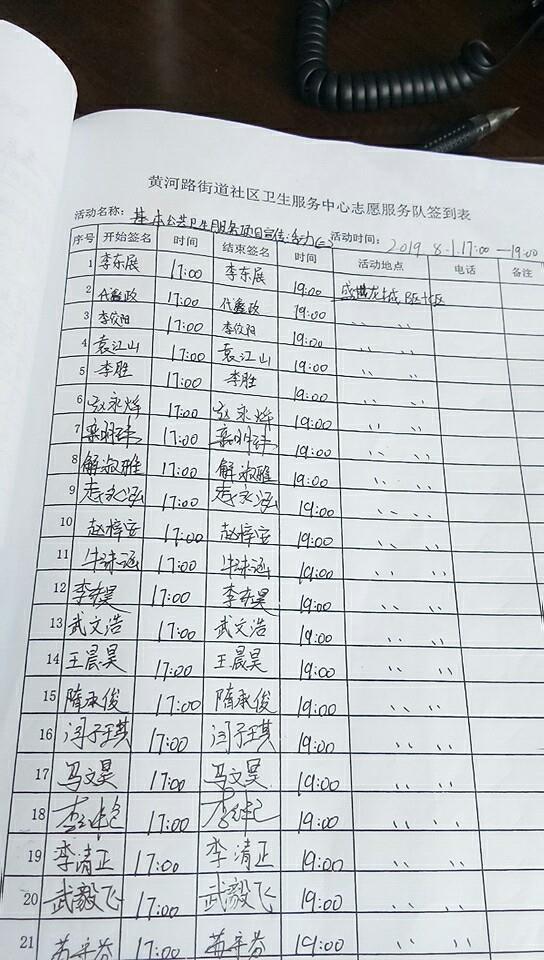 黄河路街道社区卫生服务中心志愿服务队签到表
活动名称：基本公共卫生服务项目宣传活动(二) 活动时间：2019.8.1.17:00—19:00
序号 开始签名 时间 结束签名 时间 活动地点 电话 备注
1 李东展 17:00 李东展 19:00 盛世龙城B区
2 代鑫政 17:00 代鑫政 19:00 、、 、、
3 李俊阳 17:00 李俊阳 19:00 、、 、、
4 袁江山 17:00 袁江山 19:00 、、 、、
5 李胜 17:00 李胜 19:00 、、 、、
6 赵永烨 17:00 赵永烨 19:00 、、 、、
7 17:00 19:00 、、 、、
8 解淑雅 17:00 解淑雅 19:00 、、 、、
9 17:00 19:00 、、 、、
10 赵梓安 17:00 赵梓安 19:00 、、 、、
11 牛沫涵 17:00 牛沫涵 19:00 、、 、、
12 李奕昊 17:00 李奕昊 19:00 、、 、、
13 武文浩 17:00 武文浩 19:00 、、 、、
14 王晨昊 17:00 王晨昊 19:00 、、 、、
15 隋承俊 17:00 隋承俊 19:00 、、 、、
16 闫子琪 17:00 闫子琪 19:00 、、 、、
17 马文昊 17:00 马文昊 19:00 、、 、、
18 17:00 19:00 、、 、、
19 李清正 17:00 李清正 19:00 、、 、、
20 武毅飞 17:00 武毅飞 19:00 、、 、、
21 17:00 19:00 、、 、、